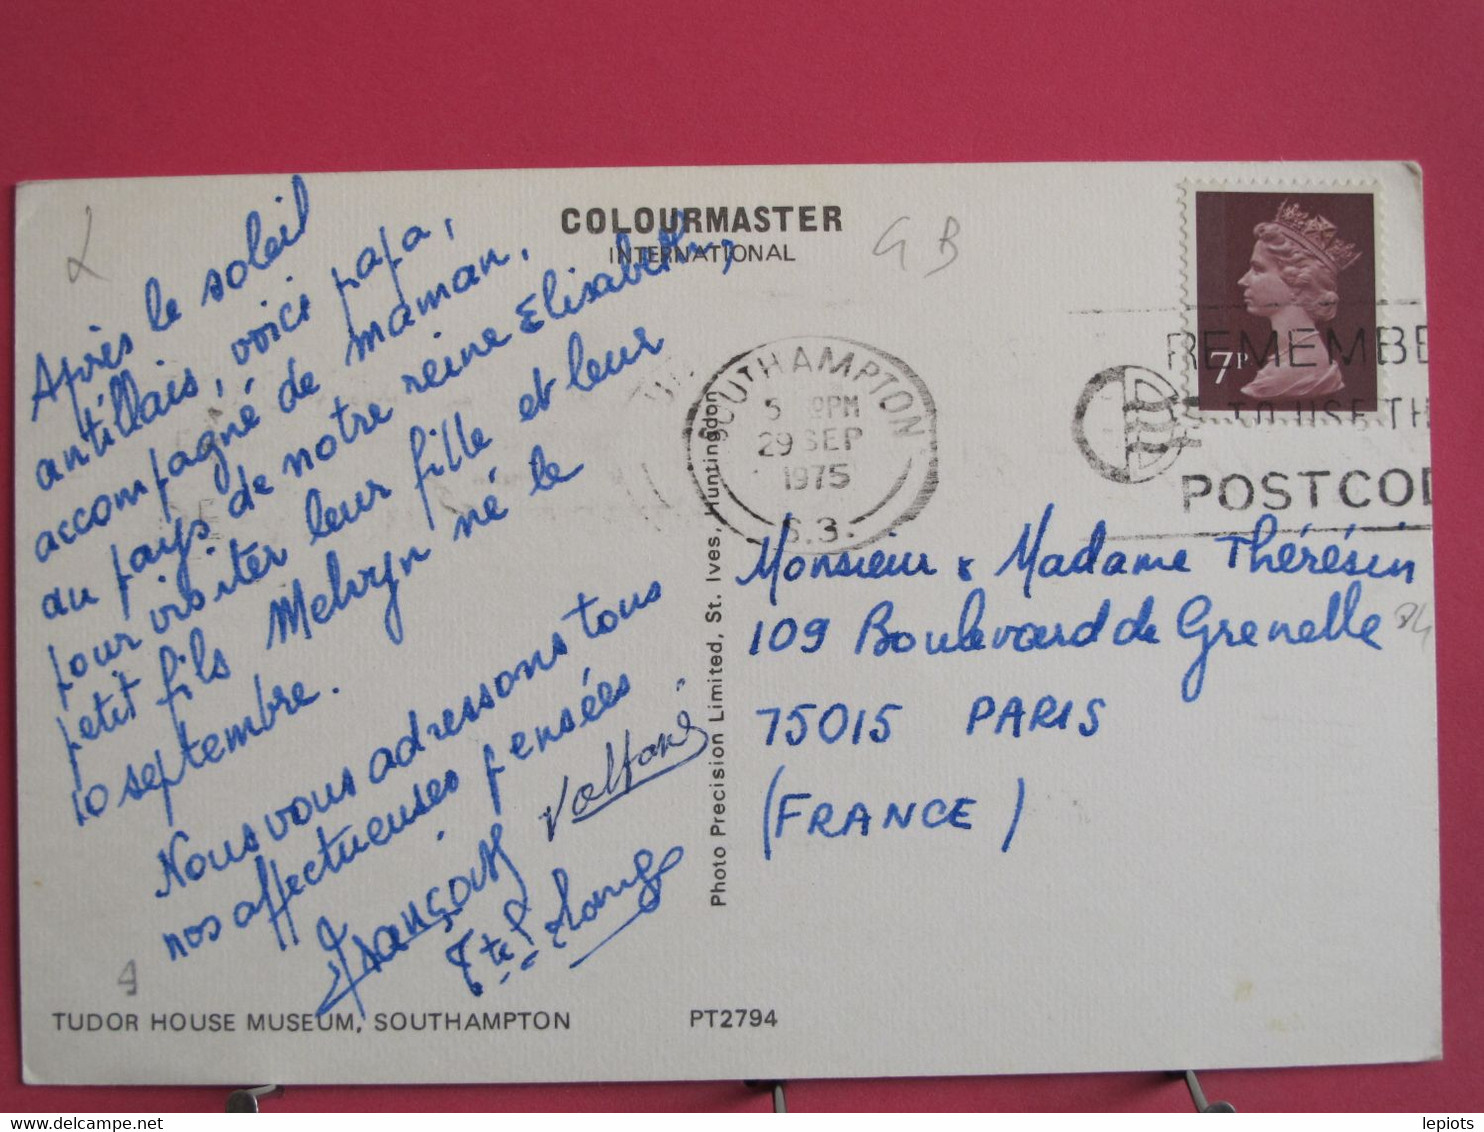 COLOURMASTER
INTERNATIONAL
GB
Après le soleil
antillais, voici papa,
accompagné de maman,
au pays de notre reine Elisabeth,
pour visiter leur fille et leur
petit fils Melvyn né le
10 septembre.
Nous vous adressons tous
nos affectueuses pensées
SOUTHAMPTON
5 PM
29 SEP
1975
S.3.
7P
REMEMBE
TO USE TH
POSTCO
Monsieur & Madame Thérésin
109 Boulevard de Grenelle
75015 PARIS
(FRANCE)
Photo Precision Limited, St. Ives, Huntingdon
TUDOR HOUSE MUSEUM, SOUTHAMPTON PT2794
Delcampe.net
lepiots